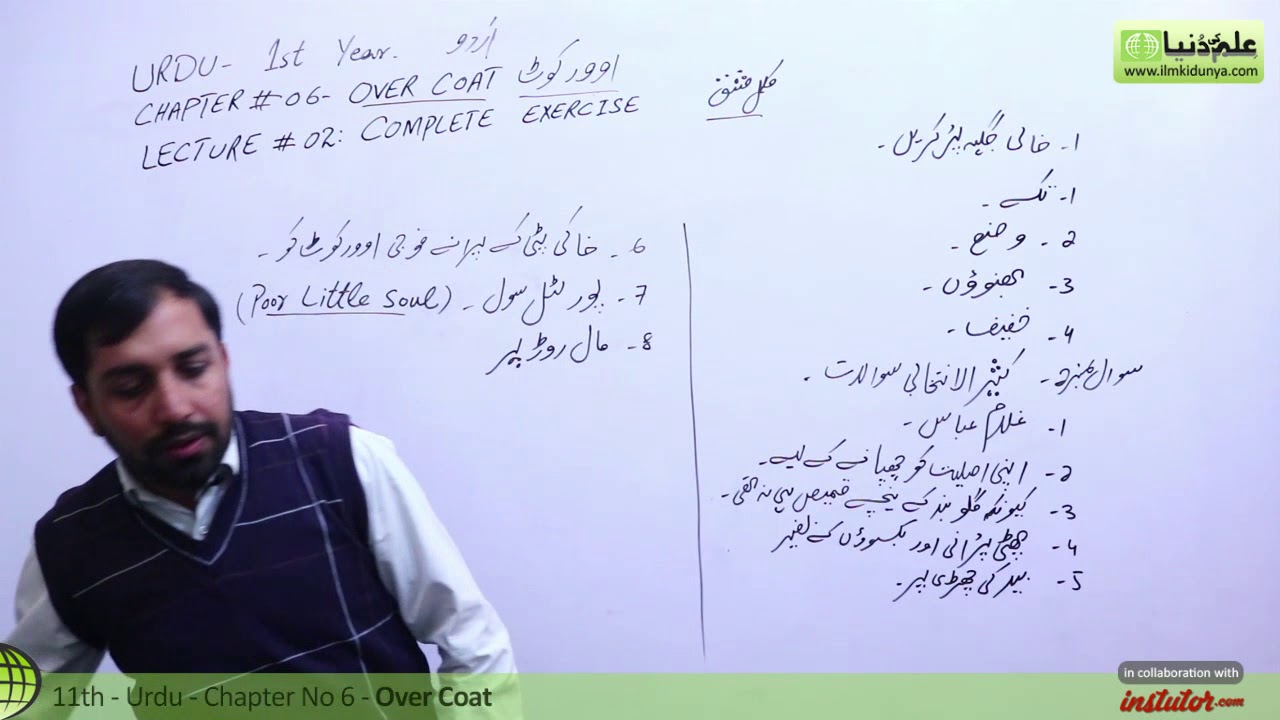 URDU- 1st Year. اُردو
CHAPTER # 06- OVER COAT اوورکوٹ
LECTURE # 02: COMPLETE EXERCISE
مکمل مشق
1۔ خالی جگہ پُر کریں۔
1۔ تکے۔
2۔ وضع۔
3۔ بھنوؤں۔
4۔ خفیف۔
سوال نمبر 2۔ کثیر الانتخابی سوالات۔
1۔ غلام عباس۔
2۔ اپنی اصلیت کو چھپانے کے لیے۔
3۔ کیونکہ گلوبند کے نیچے قمیص ہی نہ تھی۔
4۔ پھٹی پرانی اور بکسوؤں کے بغیر
5۔ بید کی چھڑی پر۔
6۔ خاکی پٹی کے پرانے فوجی اوورکوٹ کو۔
7۔ پور لٹل سول۔ (Poor Little Soul)
8۔ مال روڑ پر
علم کی دُنیا
www.ilmkidunya.com
11th - Urdu - Chapter No 6 - Over Coat
in collaboration with
instutor.com